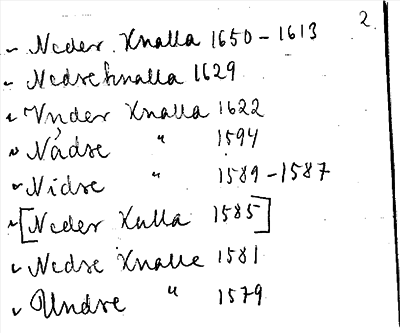 2.
~ Neder Knalla 1650 - 1613
~ Nedre knalla 1629
~ Vnder Knalla 1622
~ Nådre " 1594
~ Nidre " 1589 - 1587
~ [Neder Kulla 1585]
~ Nedre Knalle 1581
~ Undre " 1579